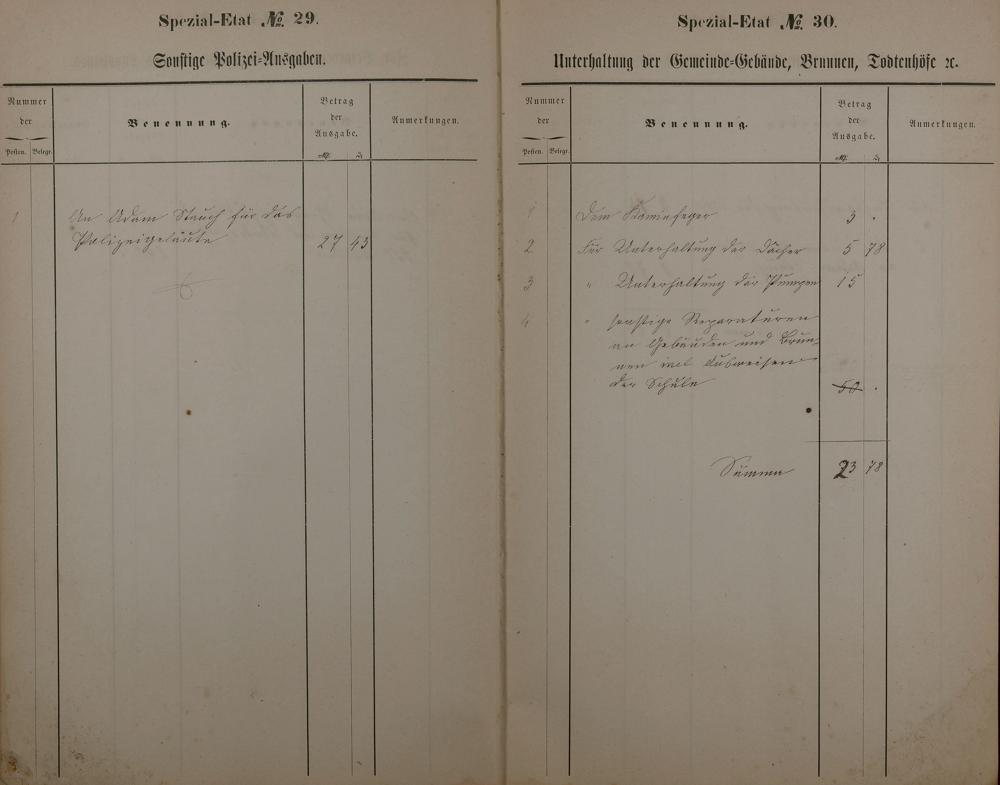 Spezial-Etat No. 29.
Sonstige Polizei-Ausgaben.
Nummer
der
Posten. Belege.
Benennung.
Betrag
der
Ausgabe.
M. ₰
Anmerkungen.
1 An Adam Stauch für das
Polizeigeläute 27 43
Spezial-Etat No. 30.
Unterhaltung der Gemeinde-Gebäude, Brunnen, Todtenhöfe ꝛc.
Nummer
der
Posten. Belege.
Benennung.
Betrag
der
Ausgabe.
M. ₰
Anmerkungen.
1 Dem Kaminfeger 3 .
2 Für Unterhaltung der Dächer 5 78
3 " Unterhaltung der Pumpen 15
4 " sonstige Reparaturen
an Gebäuden und Brun-
nen incl. Ausweisen
der Schule 50 .
Summa 23 78